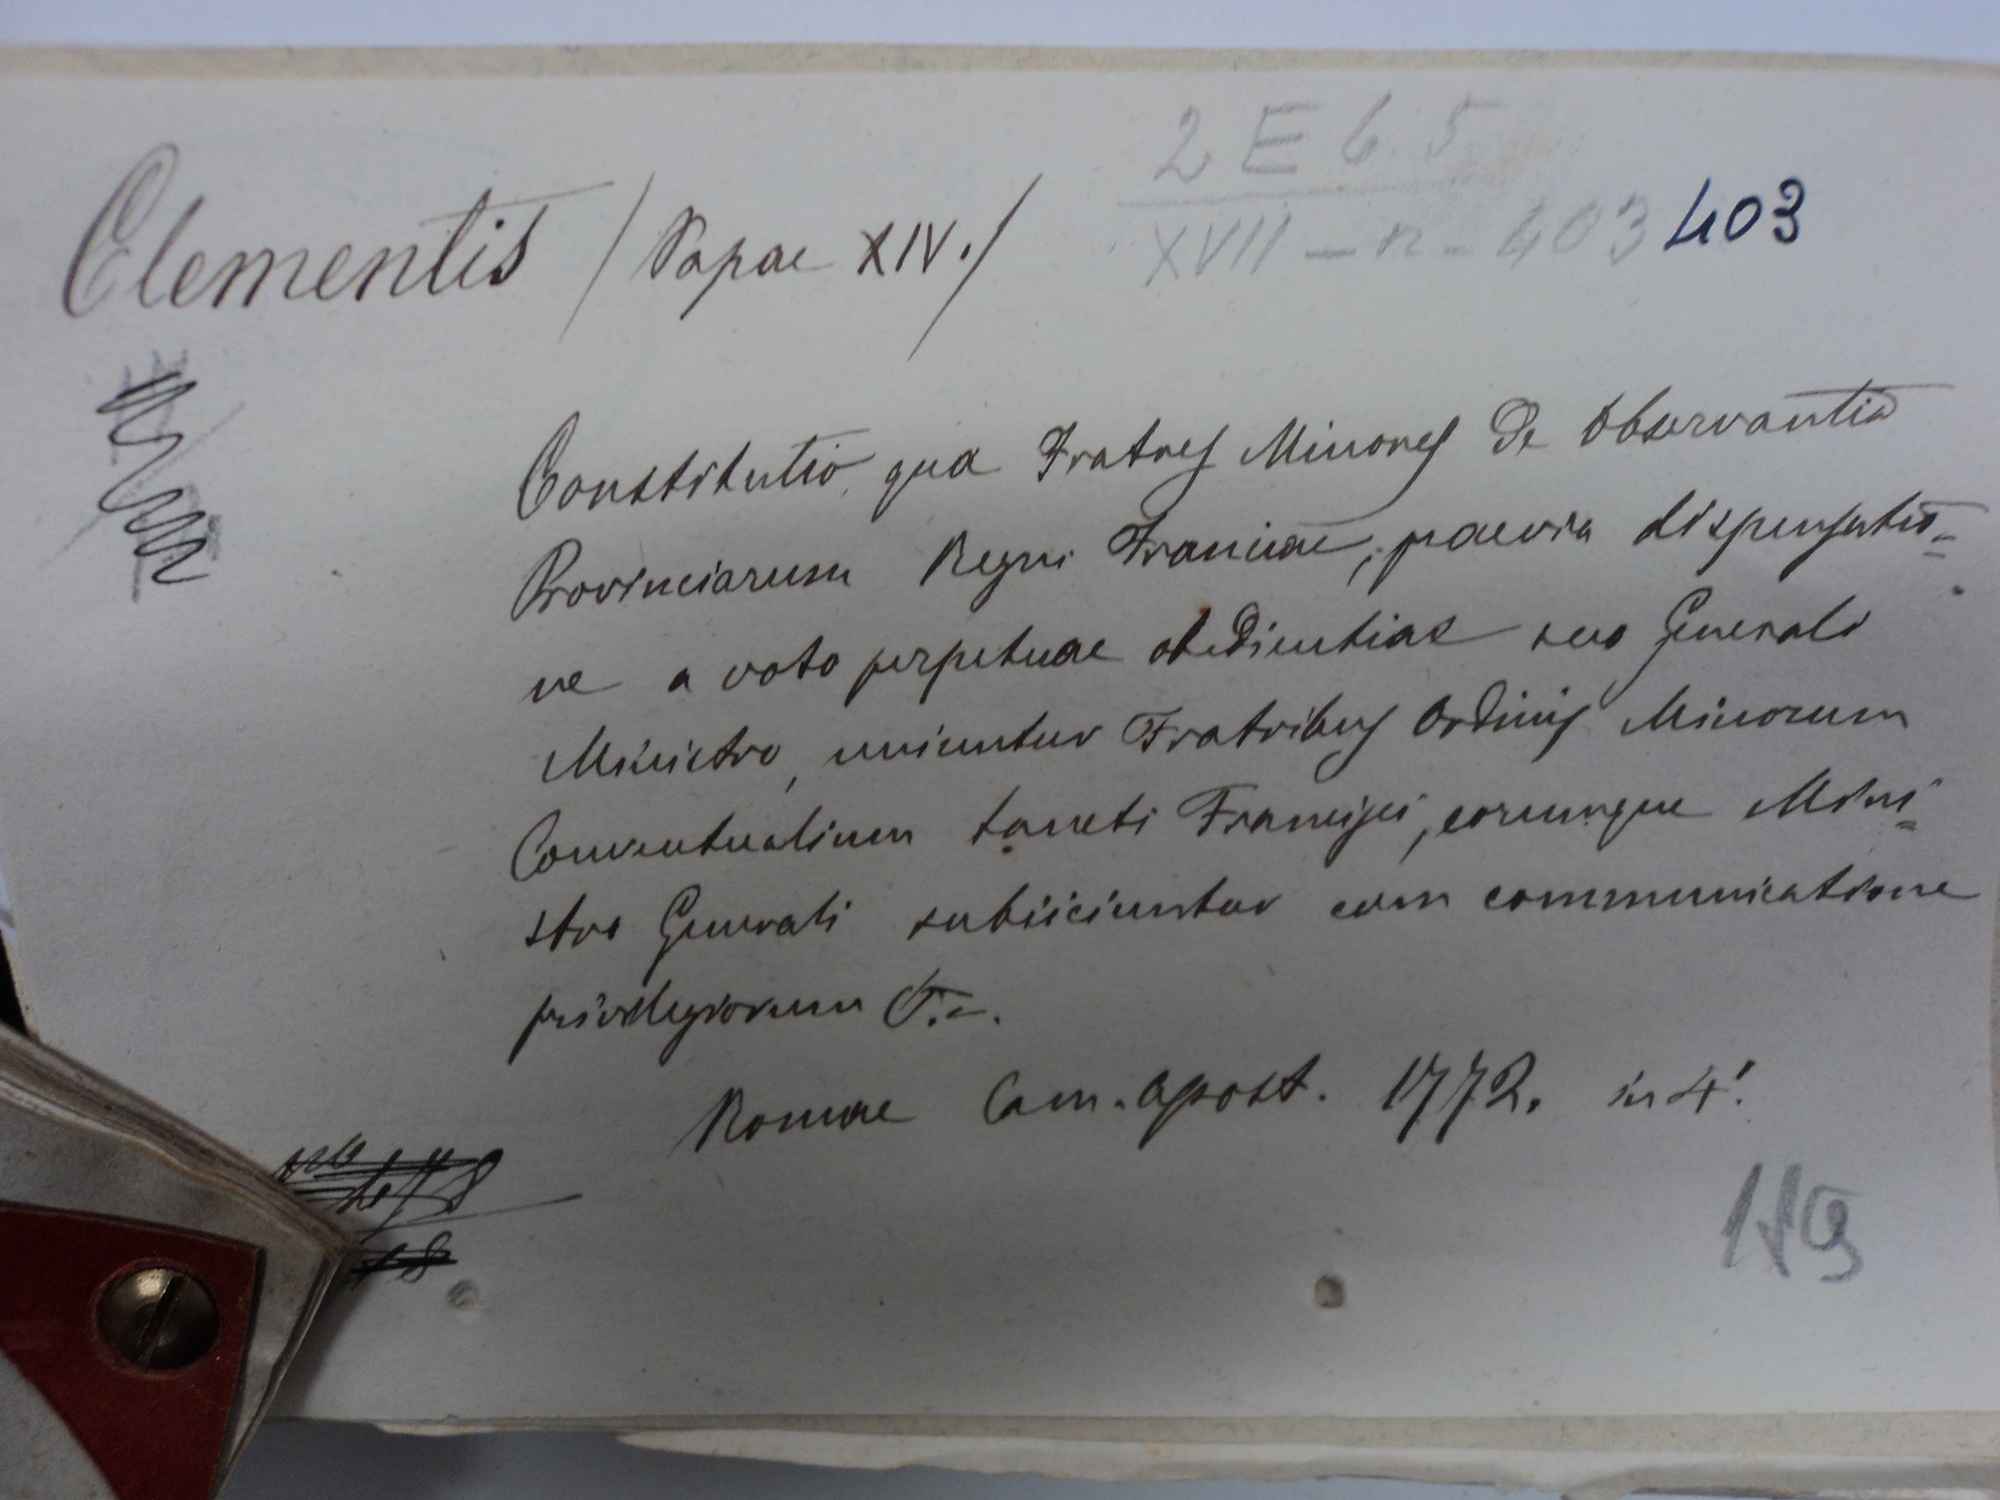 2 E 6.5
XVII - n - 403 403
Clementis / Papae XIV. /
Constitutio, qua Fratres Minores de Observantia
Provinciarum Regni Franciae, praevia dispensatio=
ne a voto perpetuae obedientiae suo Generali
Ministro, uniuntur Fratribus Ordinis Minorum
Conventualium Sancti Francisci, eorumque Mini=
stro Generali subiiciuntur cum communicatione
privilegiorum &.
Romae Cam. Apost. 1772. in 4!